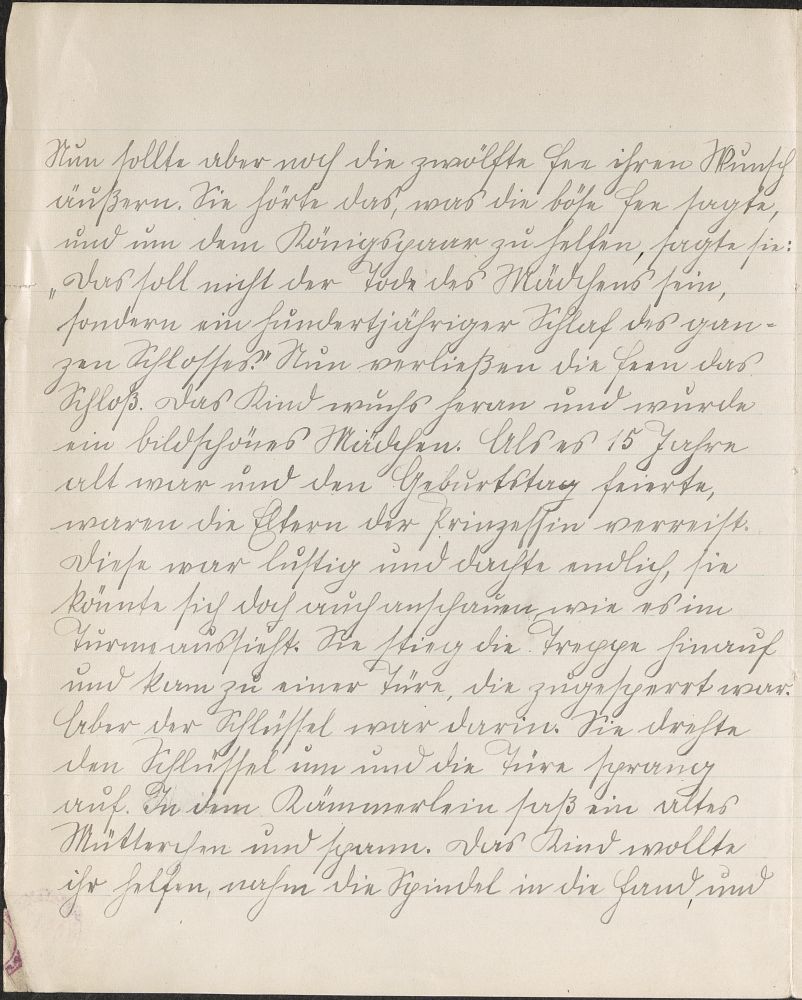 Nun sollte aber noch die zwölfte Fee ihren Wunsch
äußern. Sie hörte das, was die böse Fee sagte,
und um dem Königspaar zu helfen, sagte sie:
„Das soll nicht der Tode des Mädchens sein,
sondern ein hundertjähriger Schlaf des gan-
zen Schlosses." Nun verließen die Feen das
Schloß. Das Kind wuchs heran und wurde
ein bildschönes Mädchen. Als es 15 Jahre
alt war und den Geburtstag feierte,
waren die Eltern der Prinzessin verreist.
Diese war lustig und dachte endlich, sie
könnte sich doch auch anschauen, wie es im
Turme aussieht. Sie stieg die Treppe hinauf
und kam zu einer Türe, die zugesperrt war.
Aber der Schlüssel war darin. Sie drehte
den Schlüssel um und die Türe sprang
auf. In dem Kämmerlein saß ein altes
Mütterchen und spann. Das Kind wollte
ihr helfen, nahm die Spindel in die Hand, und